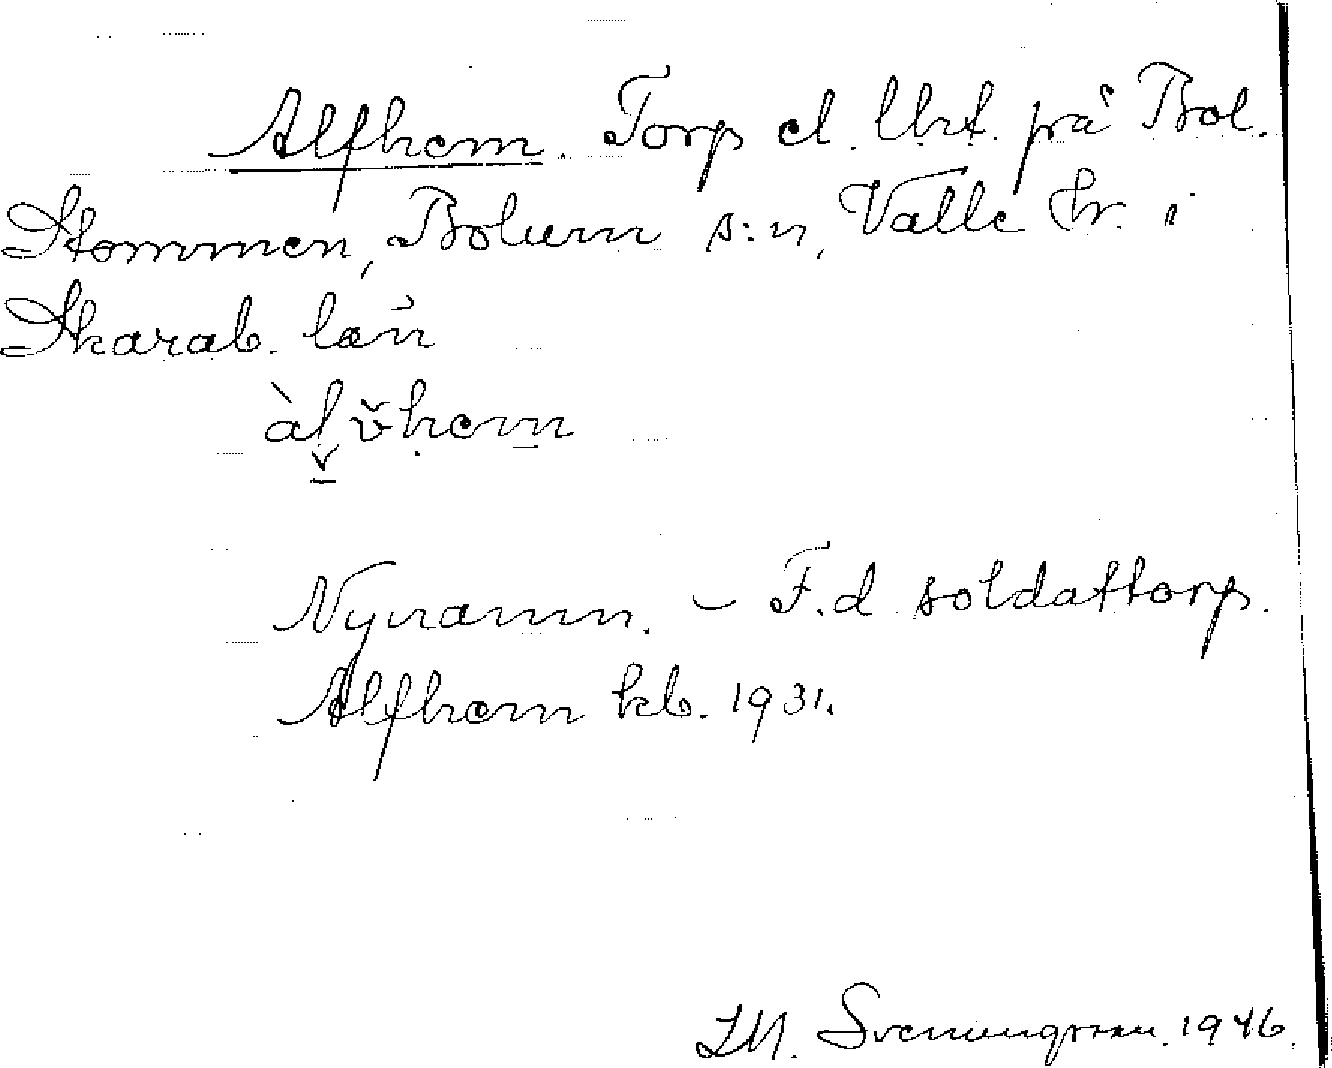 Alfhem. Torp el. lht. på Bol.
Stommen, Bolum s:n, Valle hr. i
Skarab. län
àl̬v̆hem
Nynamn. – F.d soldattorp.
Alfhem kb. 1931.
Svenungsson. 1946.